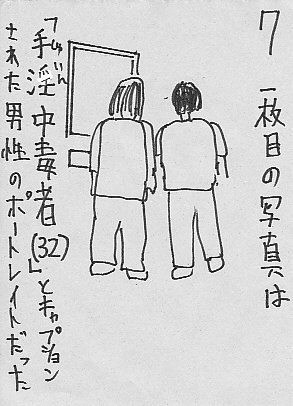 7
一枚目の写真は
「手淫中毒者(32)」とキャプション
しゅいん
された男性のポートレイトだった